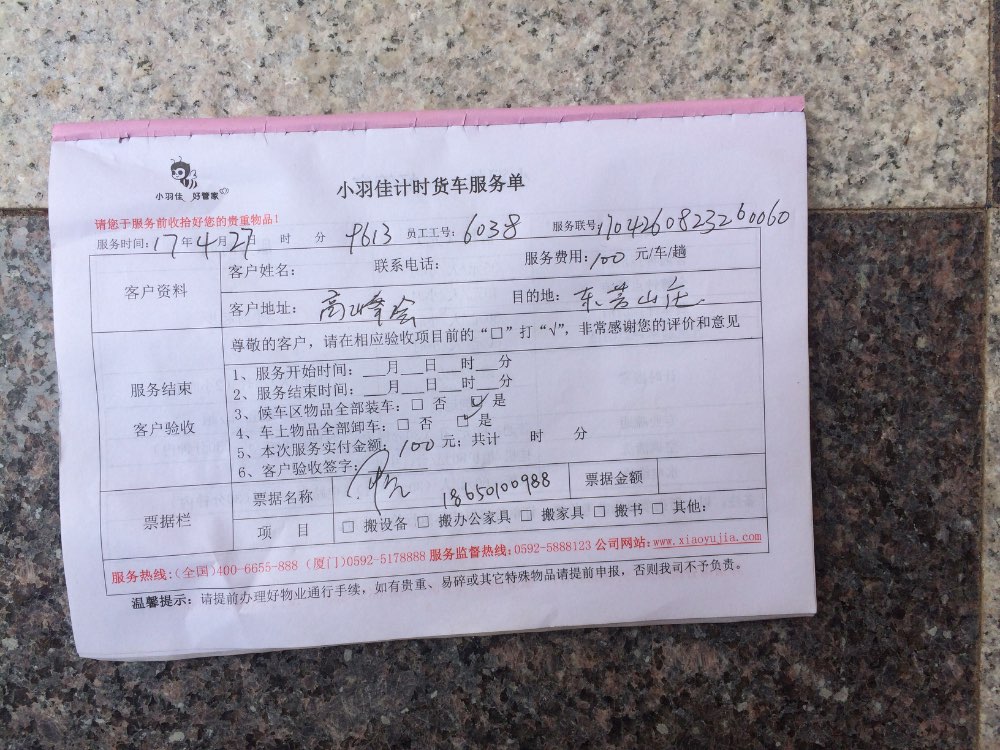 小羽佳 好管家
小羽佳计时货车服务单
请您于服务前收拾好您的贵重物品！
服务时间：17年4月27日 时 分 9613 员工工号：6038 服务联号：1704260823260060
客户资料
客户姓名： 联系电话： 服务费用：100 元/车/趟
客户地址：高峰会 目的地：东芳山庄
尊敬的客户，请在相应验收项目前的“□”打“√”，非常感谢您的评价和意见
服务结束
客户验收
1、服务开始时间：___月___日___时___分
2、服务结束时间：___月___日___时___分
3、候车区物品全部装车：□ 否 ☑ 是
4、车上物品全部卸车：□ 否 □ 是
5、本次服务实付金额：100元；共计 时 分
6、客户验收签字：
票据栏
票据名称 18650100988 票据金额
项 目 □ 搬设备 □ 搬办公家具 □ 搬家具 □ 搬书 □ 其他：
服务热线：(全国)400-6655-888 (厦门)0592-5178888 服务监督热线：0592-5888123 公司网站：www.xiaoyujia.com
温馨提示：请提前办理好物业通行手续，如有贵重、易碎或其它特殊物品请提前申报，否则我司不予负责。